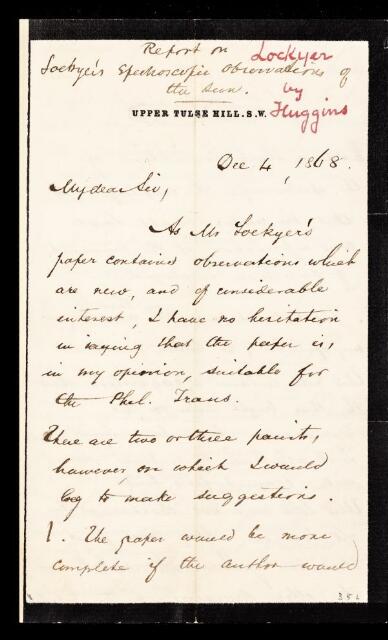 Report on
Lockyer's Spectroscopic Observations of
the Sun.
Lockyer
by
Huggins
UPPER TULSE HILL. S.W.
Dec 4, 1868.
My dear Sir,
As Mr Lockyer's
paper contains observations which
are new, and of considerable
interest, I have no hesitation
in saying that the paper is,
in my opinion, suitable for
the Phil. Trans.
There are two or three points,
however, on which I would
beg to make suggestions.
1. The paper would be more
complete if the author would